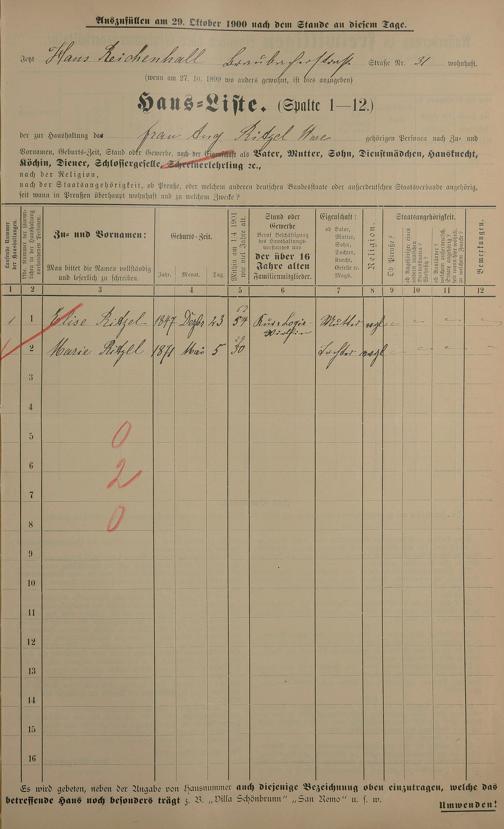 Auszufüllen am 29. Oktober 1900 nach dem Stande an diesem Tage.
Jetzt Haus Reichenhall Straße Nr. 31 wohnhaft.
(wenn am 27. 10. 1899 wo anders gewohnt, ist dies anzugeben)
Haus-Liste. (Spalte 1—12.)
der zur Haushaltung des Frau Aug Ritzel Wwe gehörigen Personen nach Zu- und
Vornamen, Geburts-Zeit, Stand oder Gewerbe, nach der Eigenschaft als Vater, Mutter, Sohn, Dienstmädchen, Hausknecht,
Köchin, Diener, Schlossergeselle, Schreinerlehrling ec.,
nach der Religion,
nach der Staatsangehörigkeit, ob Preuße, oder welchem anderen deutschen Bundesstaate oder außerdeutschen Staatsverbande angehörig,
seit wann in Preußen überhaupt wohnhaft und zu welchem Zwecke?
Laufende Nummer der Haushaltungen.
Zu- und Vornamen:
Man bittet die Namen vollständig und leserlich zu schreiben.
Geburts-Zeit.
Jahr. Monat. Tag.
Mithin am 1/4 1901 wie viel Jahre alt.
Stand oder Gewerbe
der über 16 Jahre alten Familienmitglieder.
Eigenschaft:
ob Vater, Mutter, Sohn, Tochter, Knecht, Geselle ec. Magd.
Religion.
Staatsangehörigkeit.
Ob Preuße?
Bemerkungen.
1 2 3 4 5 6 7 8 9 10 11 12
1 1 Elise Ritzel 1847 Dezbr 23 53 54 Mutter evgl
2 Marie Ritzel 1871 Mai 5 30 Tochter evgl
3
4
5 0
6 2
7
8 0
9
10
11
12
13
14
15
16
Es wird gebeten, neben der Angabe von Hausnummer auch diejenige Bezeichnung oben einzutragen, welche das
betreffende Haus noch besonders trägt z. B. „Villa Schönbrunn“ „San Remo“ u. s. w.
Umwenden!